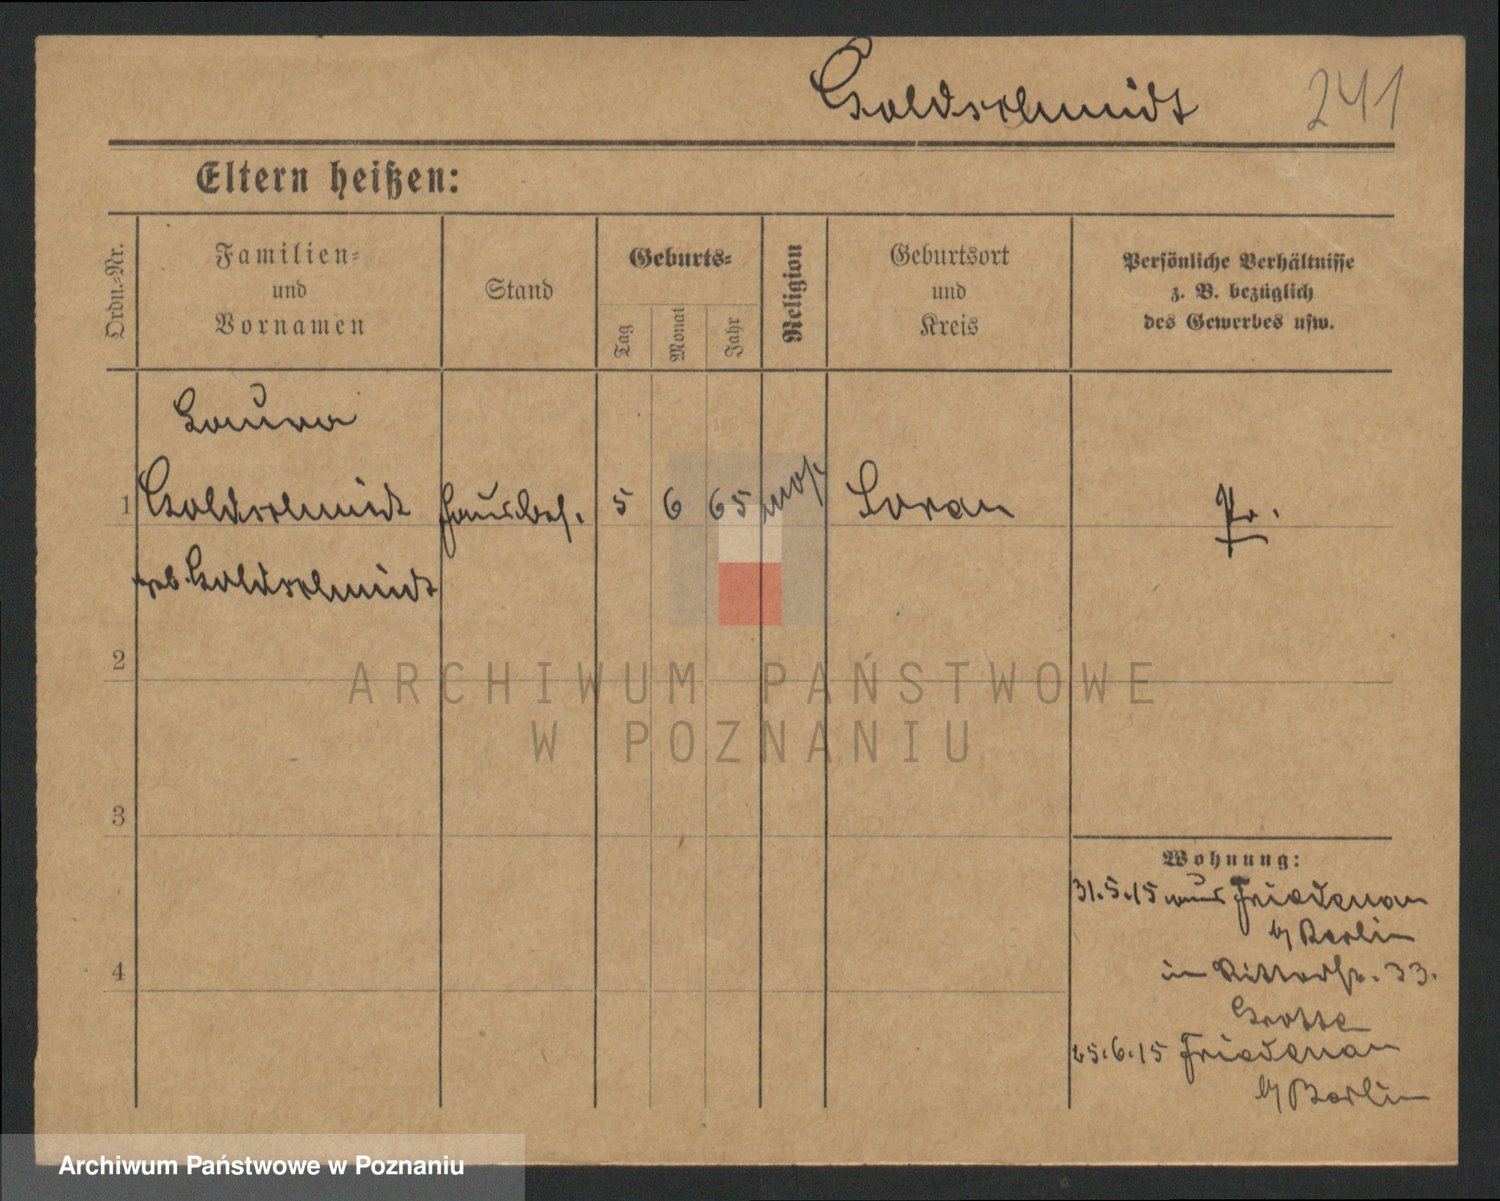 Goldschmidt 241
Eltern heißen:
Ordn.-Nr.
Familien-
und
Vornamen
Stand
Geburts-
Tag
Monat
Jahr
Religion
Geburtsort
und
Kreis
Persönliche Verhältnisse
z. B. bezüglich
des Gewerbes usw.
Laura
1 Goldschmidt Hausbes. 5 6 65 mos. Soran Pr.
geb. Goldschmidt
2
3
4
Wohnung:
31.5.15 aus Friedenau
b/ Berlin
in Ritterstr. 33.
25.6.15 Friedenau
b/ Berlin
ARCHIWUM PAŃSTWOWE
W POZNANIU
Archiwum Państwowe w Poznaniu